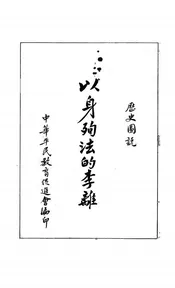 歷史圖說
以身殉法的李離
中華平民教育促進會編印